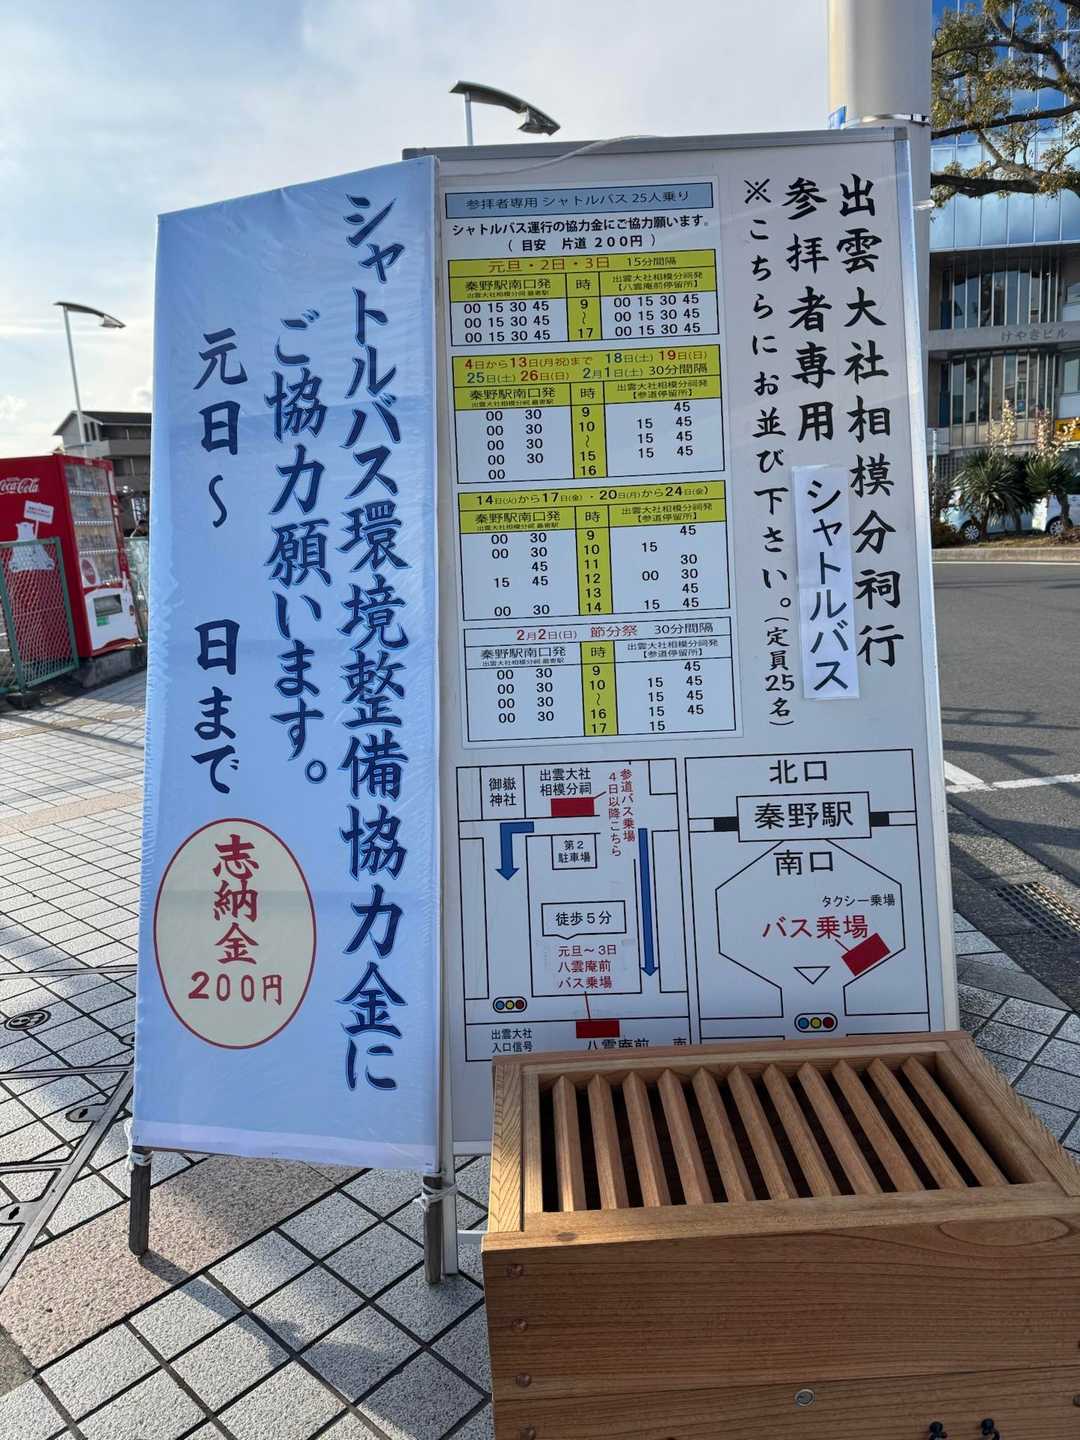 出雲大社相模分祠行
参拝者専用シャトルバス
※こちらにお並び下さい。(定員25名)
シャトルバス環境整備協力金に
ご協力願います。
元日〜　日まで
志納金
200円
参拝者専用 シャトルバス 25人乗り
シャトルバス運行の協力金にご協力願います。
( 目安　片道 200円 )
元旦・2日・3日　15分間隔
秦野駅南口発 時 出雲大社相模分祠発
出雲大社相模分祠 最寄駅 【八雲庵前停留所】
00 15 30 45 9 00 15 30 45
00 15 30 45 〜 00 15 30 45
00 15 30 45 17 00 15 30 45
4日から13日(月祝)まで 18日(土) 19日(日)
25日(土) 26日(日) 2月1日(土) 30分間隔
秦野駅南口発 時 出雲大社相模分祠発
出雲大社相模分祠 最寄駅 【参道停留所】
00 30 9 45
00 30 10 15 45
00 30 〜 15 45
00 30 15 15 45
00 16
14日(火)から17日(金)・20日(月)から24日(金)
秦野駅南口発 時 出雲大社相模分祠発
出雲大社相模分祠 最寄駅 【参道停留所】
00 30 9 45
00 30 10 15
45 11 30
15 45 12 00 30
13 45
00 30 14 15 45
2月2日(日) 節分祭 30分間隔
秦野駅南口発 時 出雲大社相模分祠発
出雲大社相模分祠 最寄駅 【参道停留所】
00 30 9 45
00 30 10 15 45
00 30 〜 15 45
00 30 16 15 45
17 15
御嶽
神社
出雲大社
相模分祠
参道バス乗場
4日以降こちら
第2
駐車場
徒歩5分
元旦〜3日
八雲庵前
バス乗場
出雲大社
入口信号
八雲庵前
南
北口
秦野駅
南口
タクシー乗場
バス乗場
Coca-Cola
けやきビル